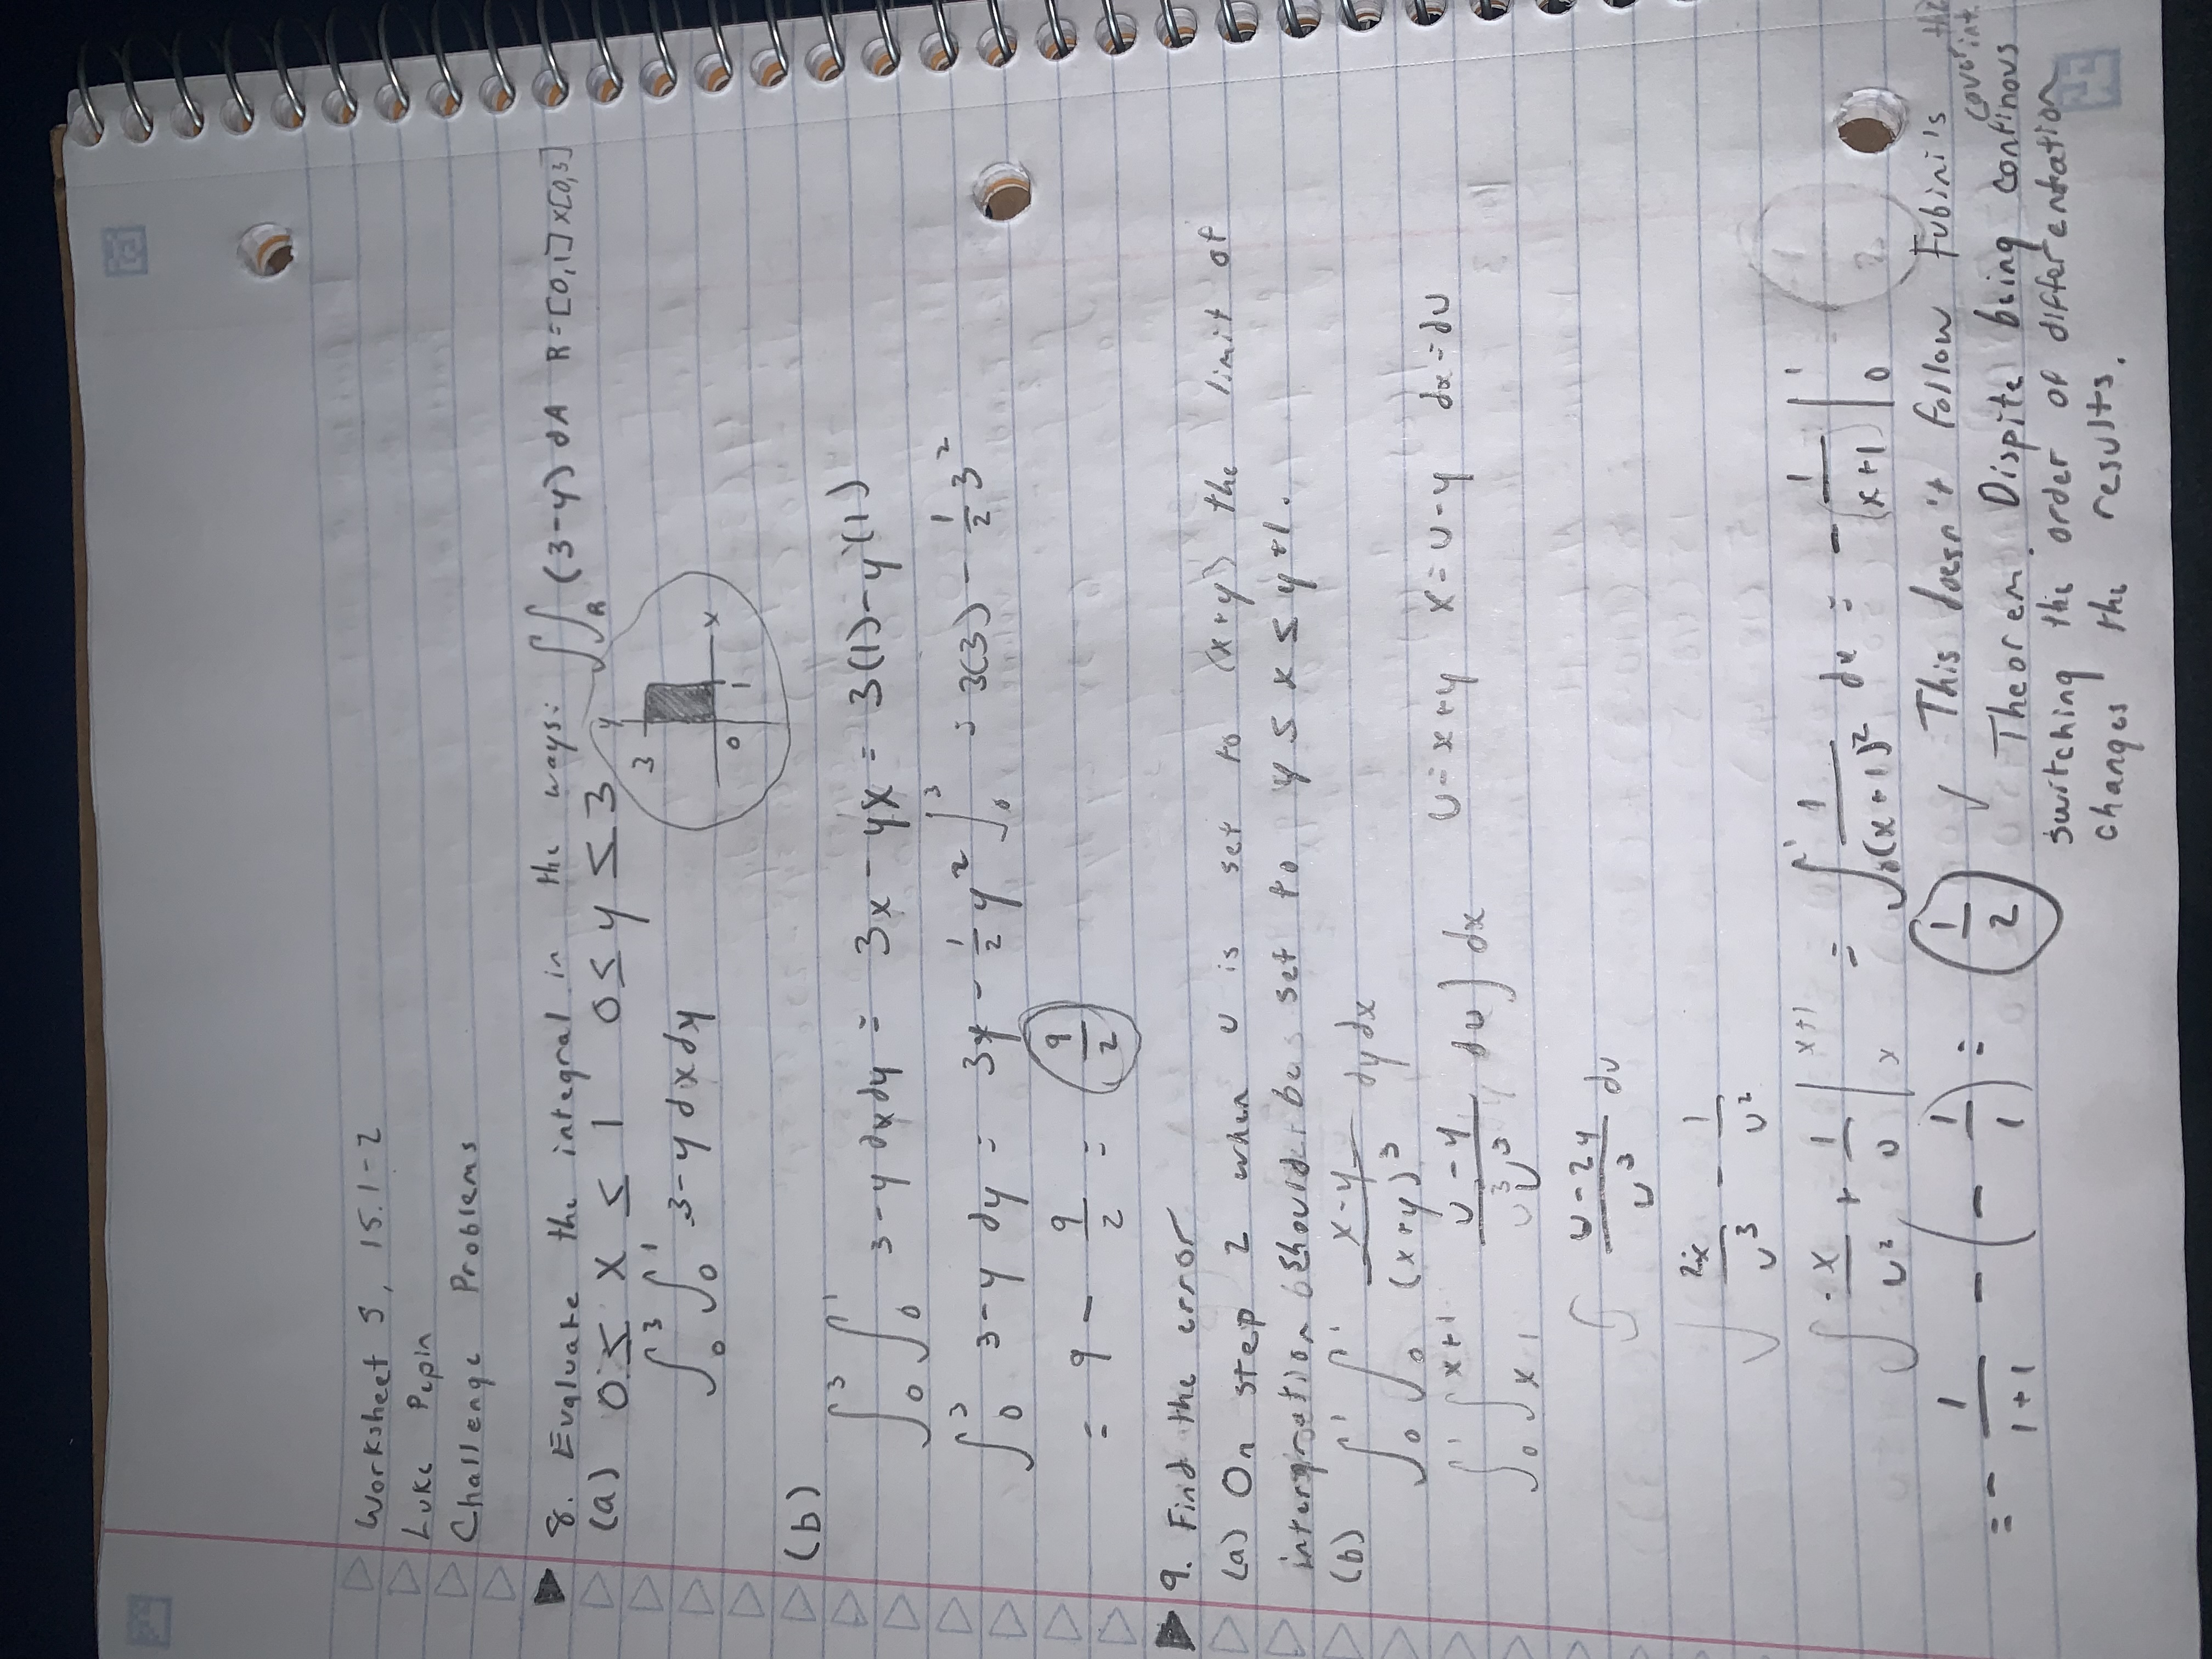 Worksheet 5, 15.1-2
Luke Pepin
Challenge Problems
8. Evaluate the integral in the ways: ∫∫_R (3-y) dA R=[0,1]x[0,3]
(a) 0 ≤ x ≤ 1 0 ≤ y ≤ 3
y
3
0 1 x
∫_0^3 ∫_0^1 3-y dx dy
(b)
∫_0^3 ∫_0^1 3-y dx dy = 3x - yx = 3(1)-y(1)
∫_0^3 3-y dy = 3y - 1/2 y^2 ]_0^3 = 3(3) - 1/2 3^2
= 9 - 9/2 = 9/2
9. Find the error
(a) On step 2 when u is set to (x+y) the limit of
intergration should be set to y ≤ x ≤ y+1.
(b) ∫_0^1 ∫_0^1 (x-y)/(x+y)^3 dy dx
∫_0^1 ∫_x^(x+1) (u-y)/u^3 du ] dx u=x+y x=u-y dx=du
∫ (u-2y)/u^3 du
∫ 2x/u^3 - 1/u^2
∫ -x/u^2 + 1/u |_x^(x+1) = ∫_0^1 1/(x+1)^2 dx = -1/(x+1) |_0^1
= - 1/(1+1) - (- 1/1) = 1/2 ✓ This doesn't follow Fubini's
Theorem. Dispite being continous
switching the order of differentation
changes the results.